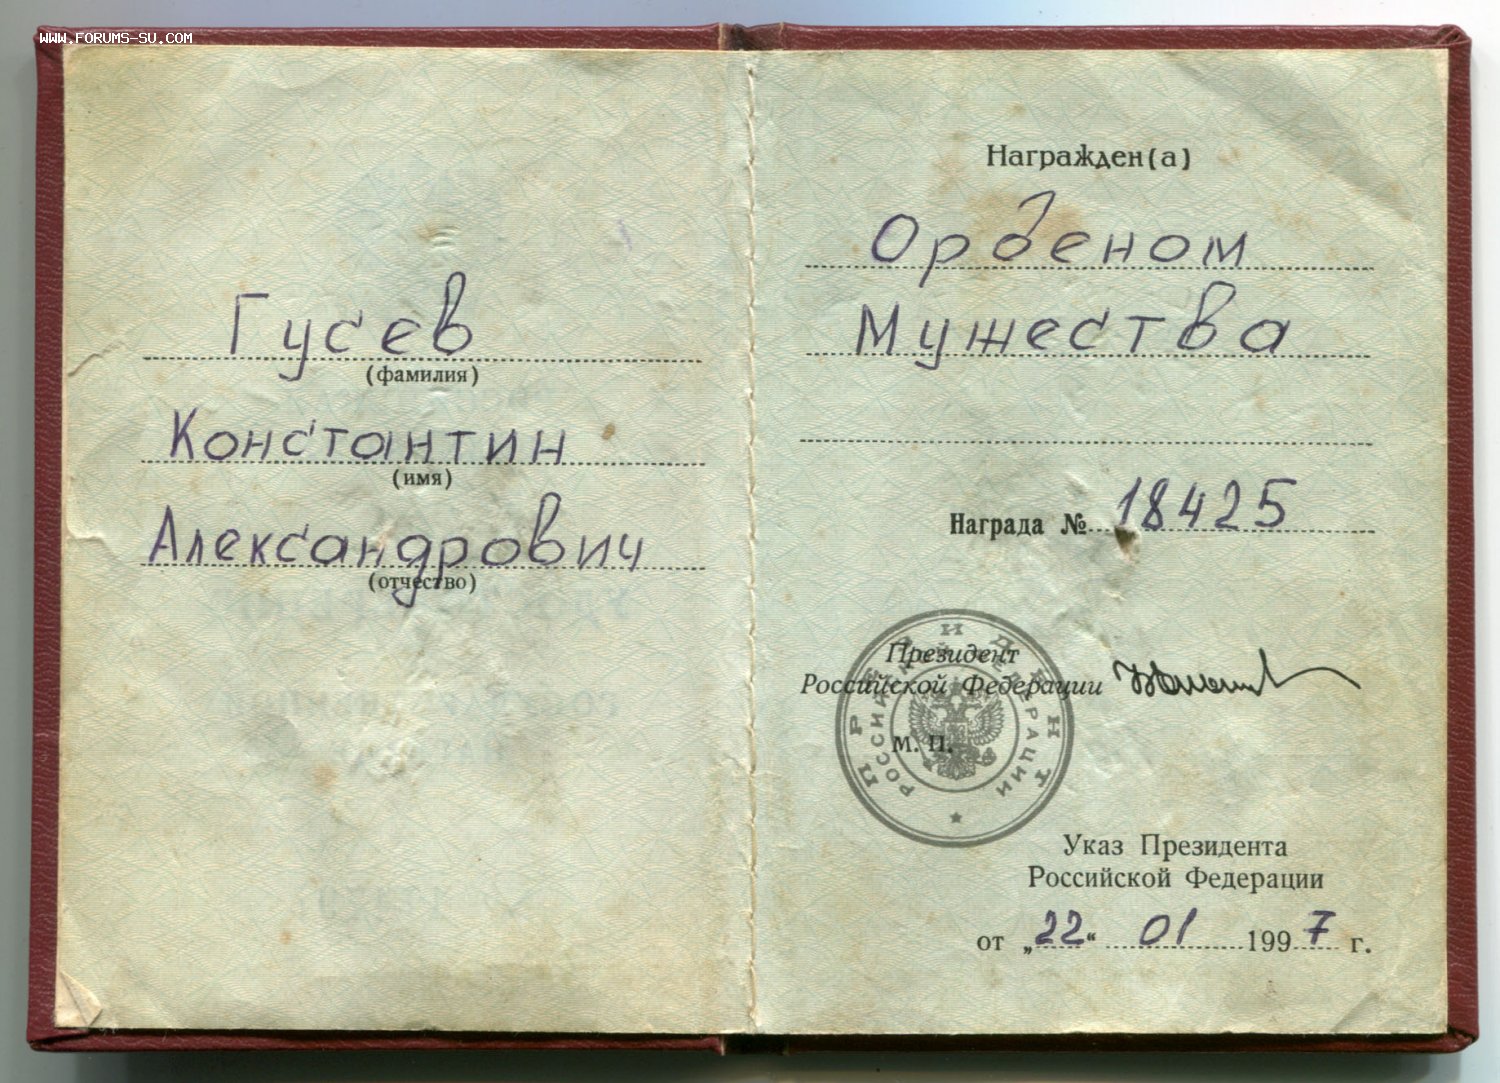 www.forums-su.com
Гусев
(фамилия)
Константин
(имя)
Александрович
(отчество)
Награжден(а)
Орденом
Мужества
Награда № 18425
Президент
Российской Федерации
М. П.
ПРЕЗИДЕНТ
РОССИЙСКОЙ ФЕДЕРАЦИИ
Указ Президента
Российской Федерации
от „22“ 01 1997 г.